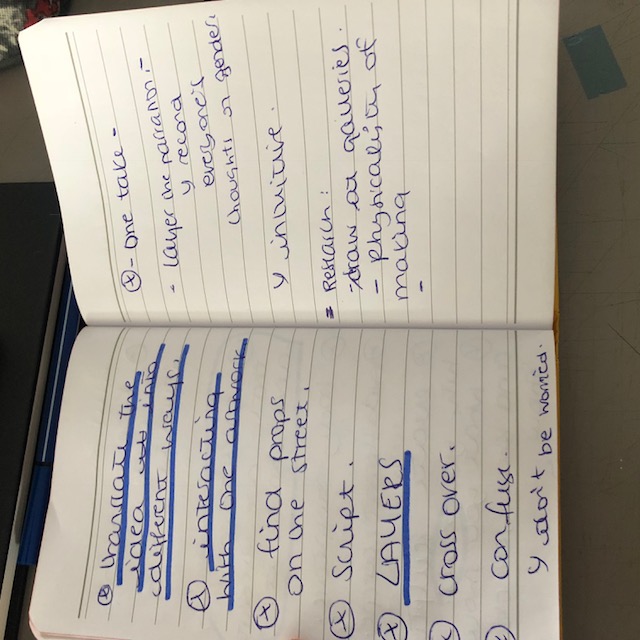 translate the
idea into
different ways.
interacting
with the artwork
find props
on the street.
script.
LAYERS
cross over.
confuse.
y don't be worried.
- One take -
- Layer the narration -
y record
everyone's
thoughts on gender.
y intuitive.
= Research:
- draw at galleries.
- physicality of
making
-